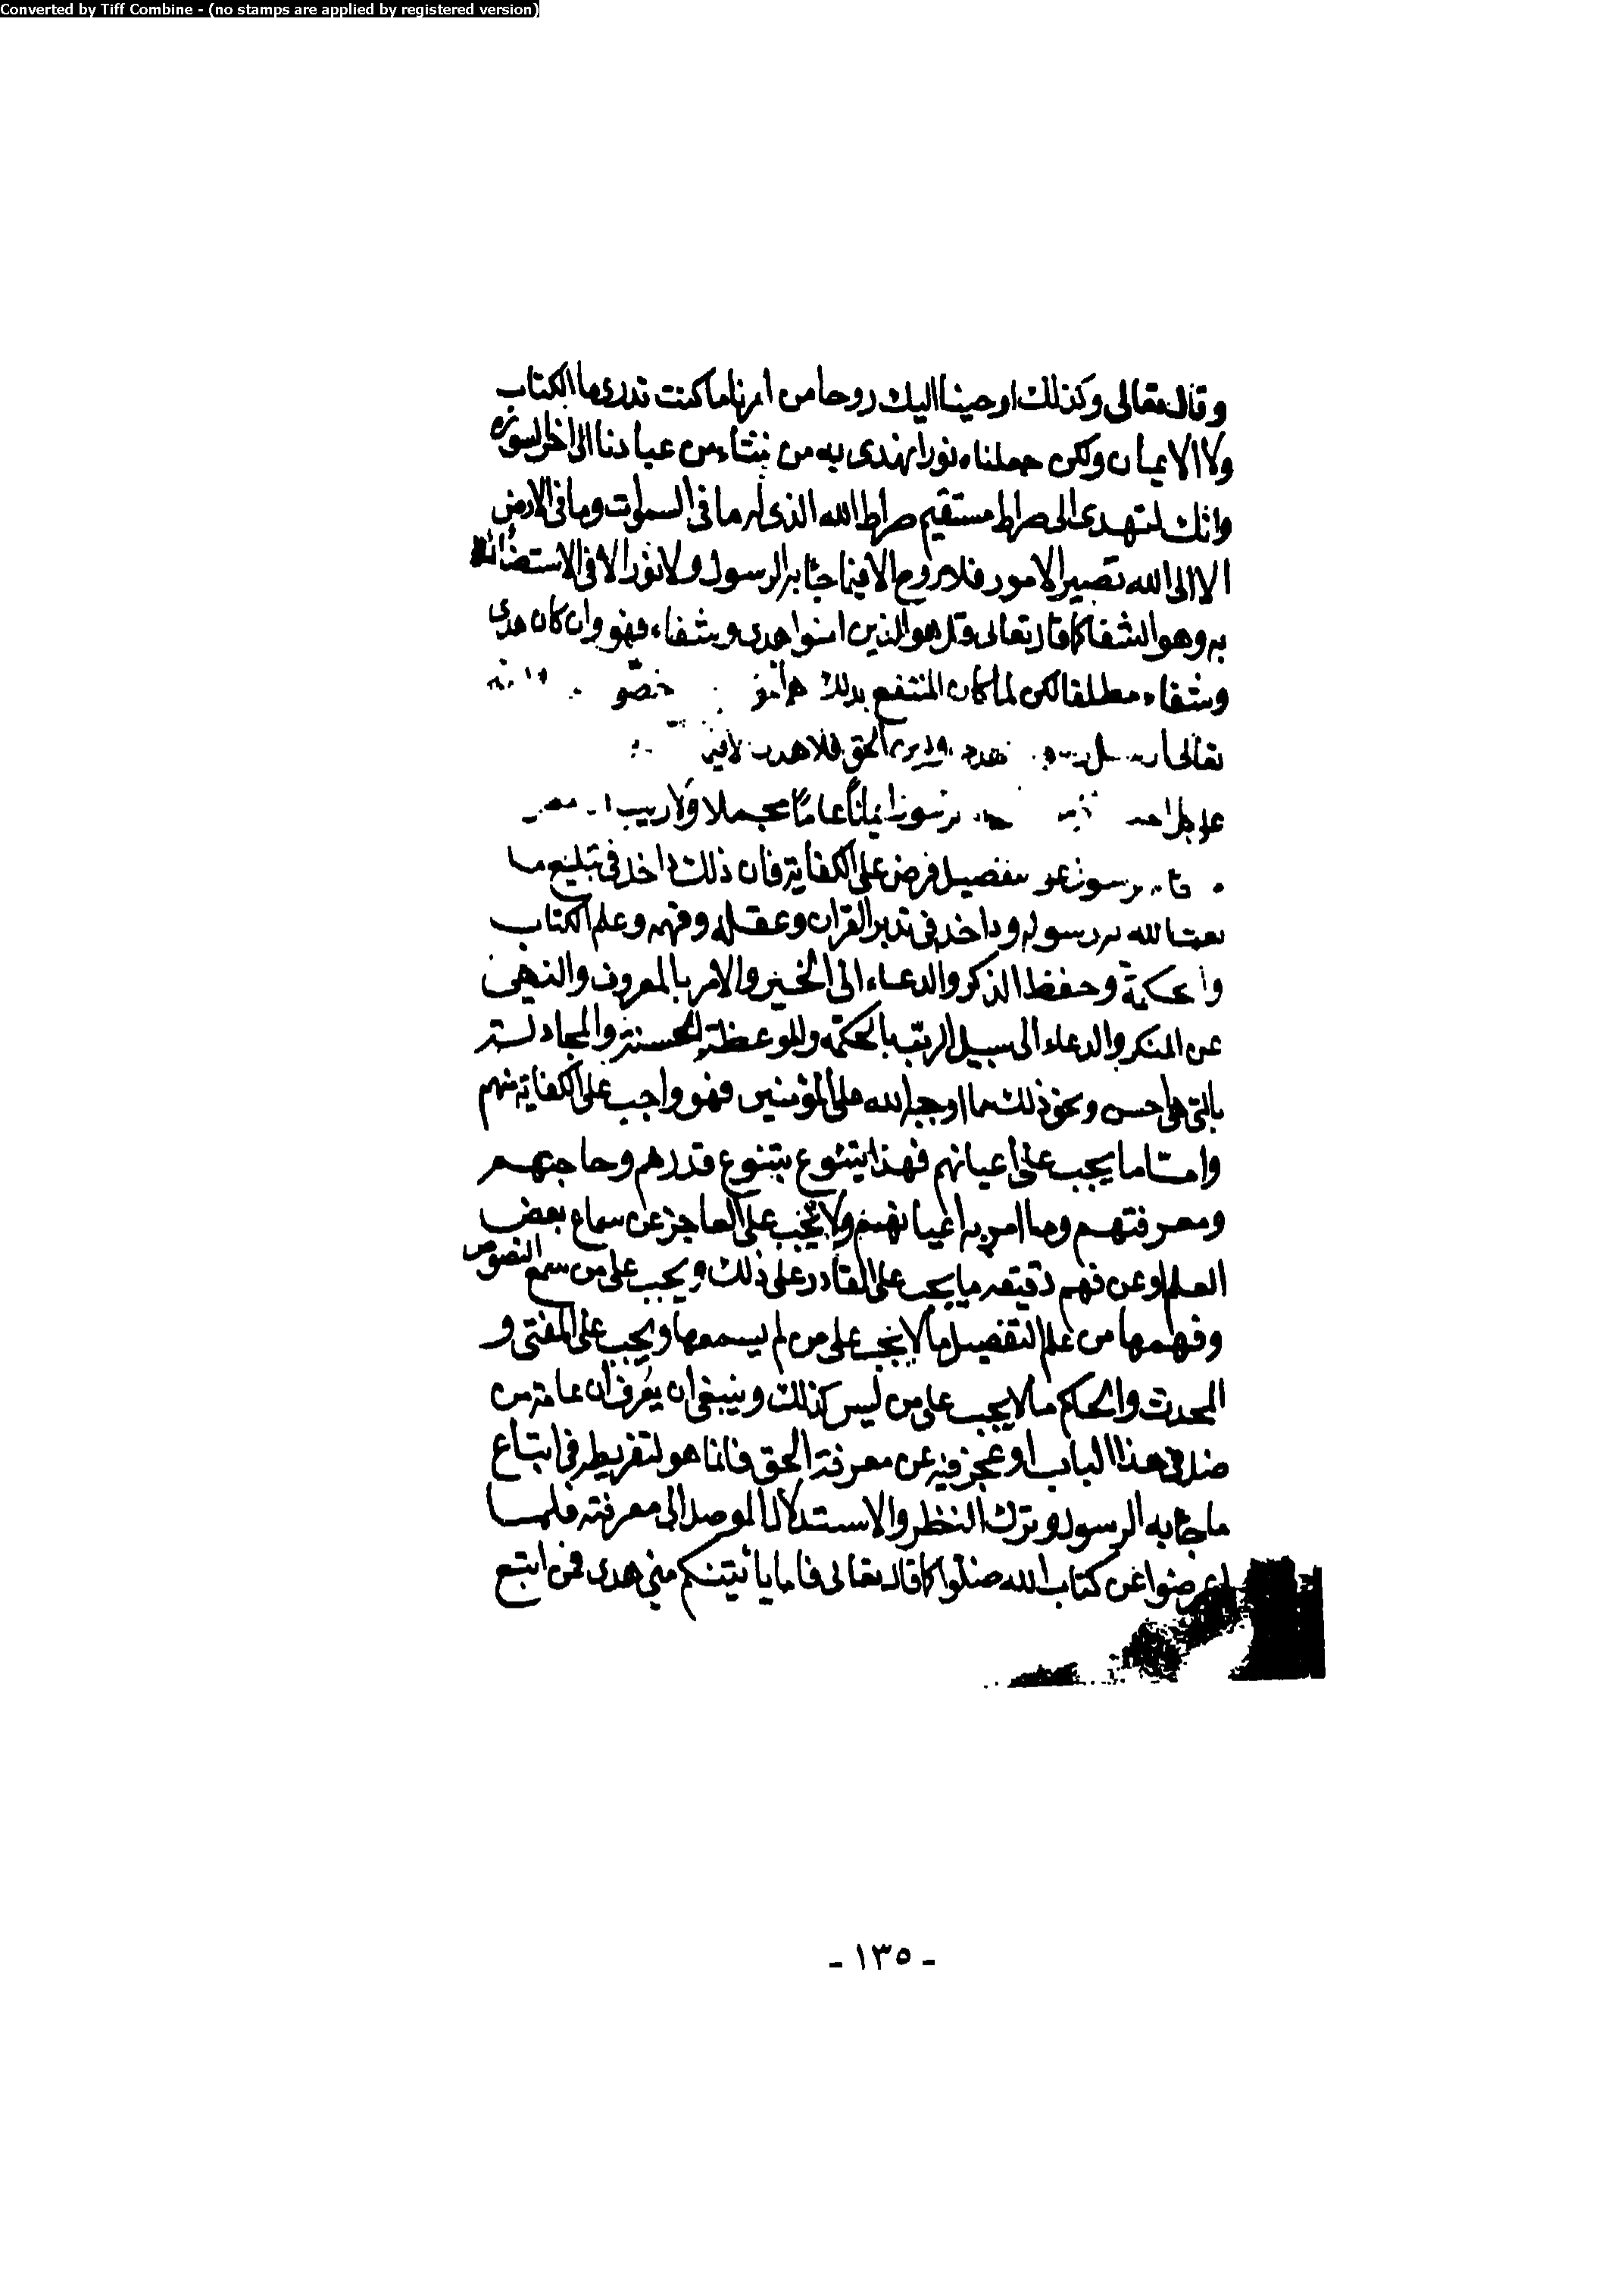 Converted by Tiff Combine - (no stamps are applied by registered version)
وقال تعالى وكذلك اوحينا اليك روحا من امرنا ما كنت تدرى ما الكتاب
ولا الايمان ولكن جعلناه نورا نهدى به من نشاء من عبادنا الى اخر السورة
وانك لتهدى الى صراط مستقيم صراط الله الذى له ما فى السموات وما فى الارض
الا الى الله تصير الامور فلا روح الا فيما جا به الرسول ولا نور الا فى الاستضائة
به وهو الشفا كما قال تعالى قل هو للذين امنوا هدى وشفاء فهو وان كان هدى
وشفاء مطلقا لكن لما كان المنتفع بذلك
تعالى الحق فلا هدى
على كل احد الرسول ايمانًا عامًا مجملا ولا ريب
الرسول على التفصيل فرض على الكفاية فان ذلك داخل فى تبليغ ما
بعث الله به رسوله وداخل فى تدبر القران وعقله وفهمه وعلم الكتاب
والحكمة وحفظ الذكر والدعاء الى الخير والامر بالمعروف والنهى
عن المنكر والدعاء الى سبيل الرب بالحكمة والموعظة الحسنة والمجادلة
بالتى هى احسن ونحو ذلك مما اوجبه الله على المؤمنين فهو واجب على الكفاية منهم
وامّا ما يجب على اعيانهم فهذا يتنوع بتنوع قدرهم وحاجتهم
ومعرفتهم وما امر به اعيانهم ولا يجب على العاجز عن سماع بعض
العلم او عن فهم دقيقه ما يجب على القادر على ذلك ويجب على من سمع النصوص
وفهمها من علم التفصيل ما لا يجب على من لم يسمعها ويجب على المفتى و
المحدث والحاكم ما لا يجب على من ليس كذلك وينبغى ان يعرف ان عامة من
ضل فى هذا الباب او عجز فيه عن معرفة الحق فانما هو لتفريطه فى اتباع
ما جا به الرسول وترك النظر والاستدلال الموصل الى معرفته فلما
اعرضوا عن كتاب الله ضلّوا كما قال تعالى فاما يأتينكم منى هدى فمن اتبع
- ١٣٥ -